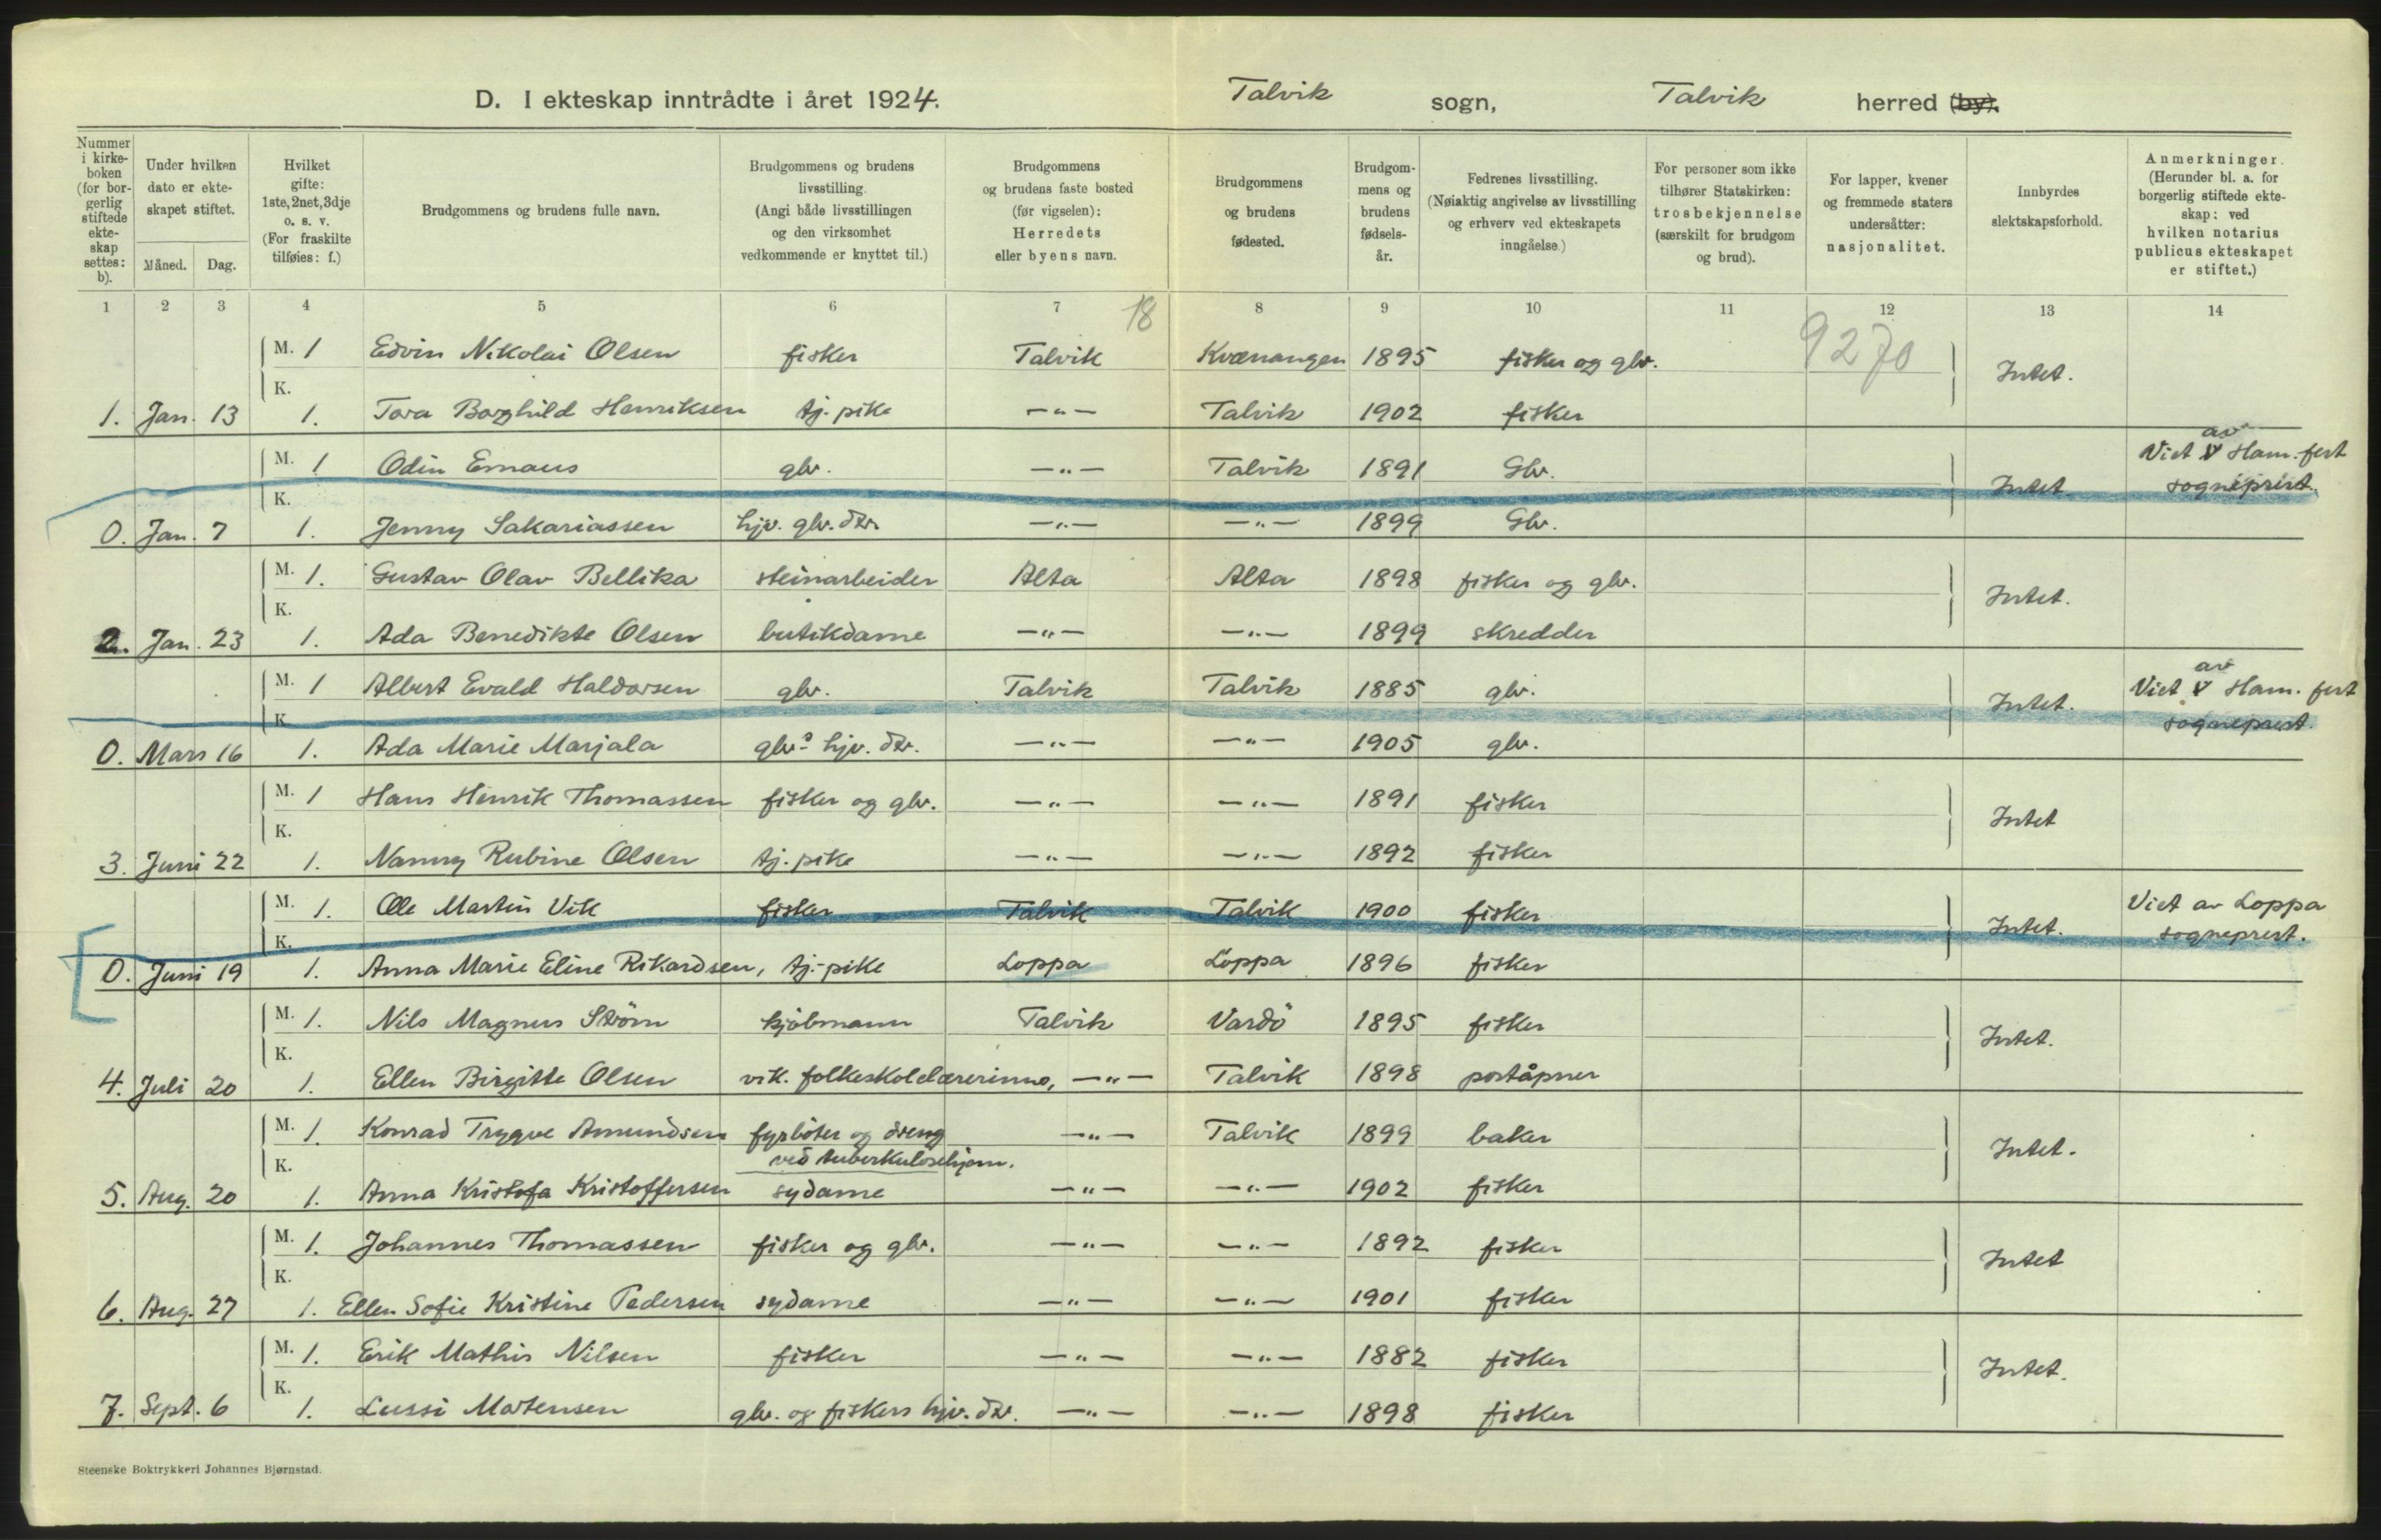 D. I ekteskap inntrådte i året 1924. Talvik sogn, Talvik herred (by).
Nummer i kirkeboken (for borgerlig stiftede ekteskap settes: b).
Under hvilken dato er ekteskapet stiftet.
Måned. Dag.
Hvilket gifte: 1ste, 2net, 3dje o. s. v. (For fraskilte tilføies: f.)
Brudgommens og brudens fulle navn.
Brudgommens og brudens livsstilling. (Angi både livsstillingen og den virksomhet vedkommende er knyttet til.)
Brudgommens og brudens faste bosted (før vigselen): Herredets eller byens navn.
Brudgommens og brudens fødested.
Brudgommens og brudens fødselsår.
Fedrenes livsstilling. (Nøiaktig angivelse av livsstilling og erhverv ved ekteskapets inngåelse.)
For personer som ikke tilhører Statskirken: trosbekjennelse (særskilt for brudgom og brud).
For lapper, kvener og fremmede staters undersåtter: nasjonalitet.
Innbyrdes slektskapsforhold.
Anmerkninger. (Herunder bl. a. for borgerlig stiftede ekteskap: ved hvilken notarius publicus ekteskapet er stiftet.)
1 2 3 4 5 6 7 18 8 9 10 11 12 13 14
9270
M. 1 Edvin Nikolai Olsen fisker Talvik Kvænangen 1895 fisker og gbr. Intet.
K.
1. Jan. 13 1. Tora Borghild Henriksen tj. pike —"— Talvik 1902 fisker
M. 1 Odin Emaus gbr. —"— Talvik 1891 Gbr. Intet Viet av Ham.fest sogneprest.
K.
0. Jan. 7 1. Jenny Sakariassen hjv. gbr. dtr. —"— —"— 1899 Gbr.
M. 1. Gustav Olav Bellika steinarbeider Alta Alta 1898 fisker og gbr. Intet.
K.
2. Jan. 23 1. Ada Benedikte Olsen butikdame —"— —"— 1899 skredder
M. 1 Albert Evald Haldorsen gbr. Talvik Talvik 1885 gbr. Intet. Viet av Ham. fest sogneprest.
K.
0. Mars 16 1. Ada Marie Marjala gbrs hjv. dtr. —"— —"— 1905 gbr.
M. 1 Hans Henrik Thomassen fisker og gbr. —"— —"— 1891 fisker Intet
K.
3. Juni 22 1. Nanny Rubine Olsen tj. pike —"— —"— 1892 fisker
M. 1. Ole Martin Vik fisker Talvik Talvik 1900 fisker Intet. Viet av Loppa sogneprest.
K.
0. Juni 19 1. Anna Marie Eline Rikardsen, tj.-pike Loppa Loppa 1896 fisker
M. 1. Nils Magnus Ström kjöbmann Talvik Vardö 1895 fisker Intet.
K.
4. Juli 20 1. Ellen Birgitte Olsen vik. folkeskolelærerinne, —"— Talvik 1898 poståpner
M. 1. Konrad Trygve Amundsen fyrböter og dreng —"— Talvik 1899 baker Intet.
K. ved tuberkulosehjem.
5. Aug. 20 1. Anna Kristofa Kristoffersen sydame —"— —"— 1902 fisker
M. 1. Johannes Thomassen fisker og gbr. —"— —"— 1892 fisker Intet
K.
6. Aug. 27 1. Ellen Sofie Kristine Pedersen sydame —"— —"— 1901 fisker
M. 1. Erik Mathis Nilsen fisker —"— —"— 1882 fisker Intet.
K.
7. Sept. 6 1. Lussi Mortensen gbr. og fiskers hjv. dtr. —"— —"— 1898 fisker
Steenske Boktrykkeri Johannes Bjørnstad.